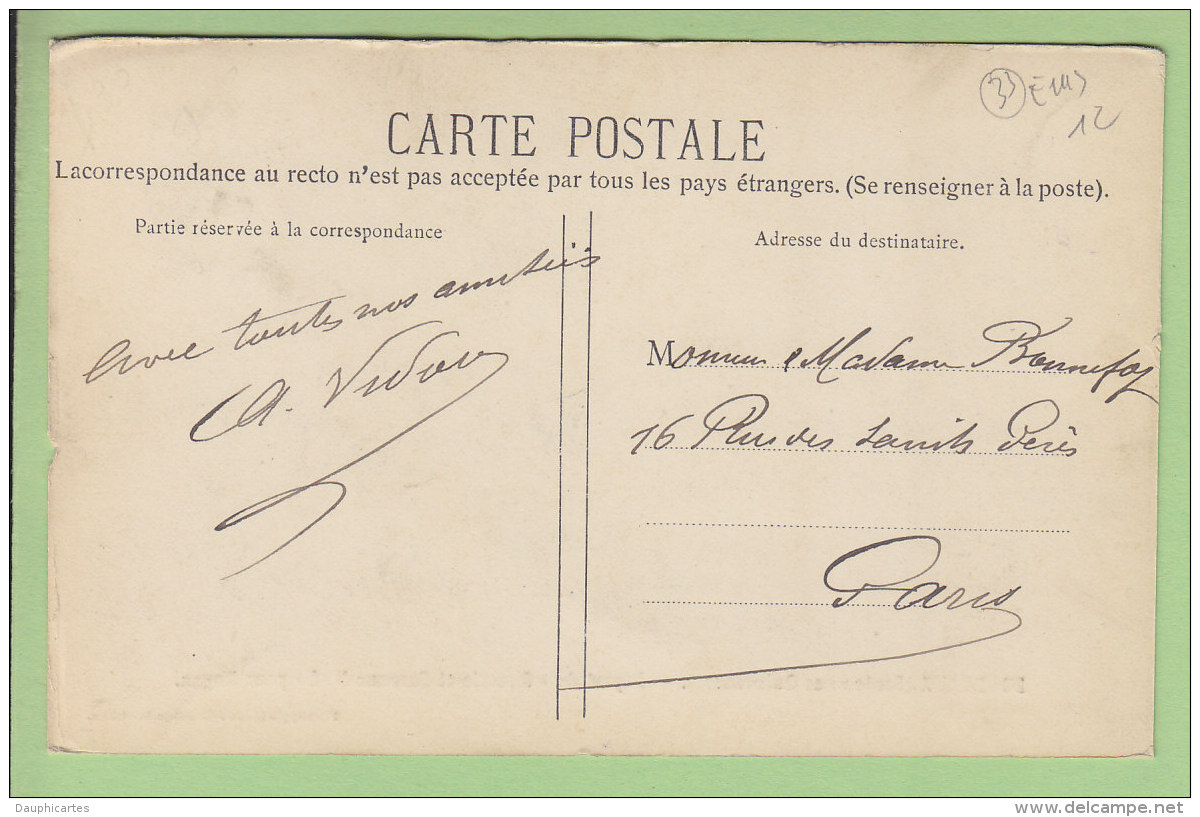 33
12
CARTE POSTALE
La correspondance au recto n'est pas acceptée par tous les pays étrangers. (Se renseigner à la poste).
Partie réservée à la correspondance
Avec toutes nos amitiés
A.
Adresse du destinataire.
Monsieur & Madame Bonnefoy
16 Rue des Saints Pères
Paris
Dauphicartes
www.delcampe.net